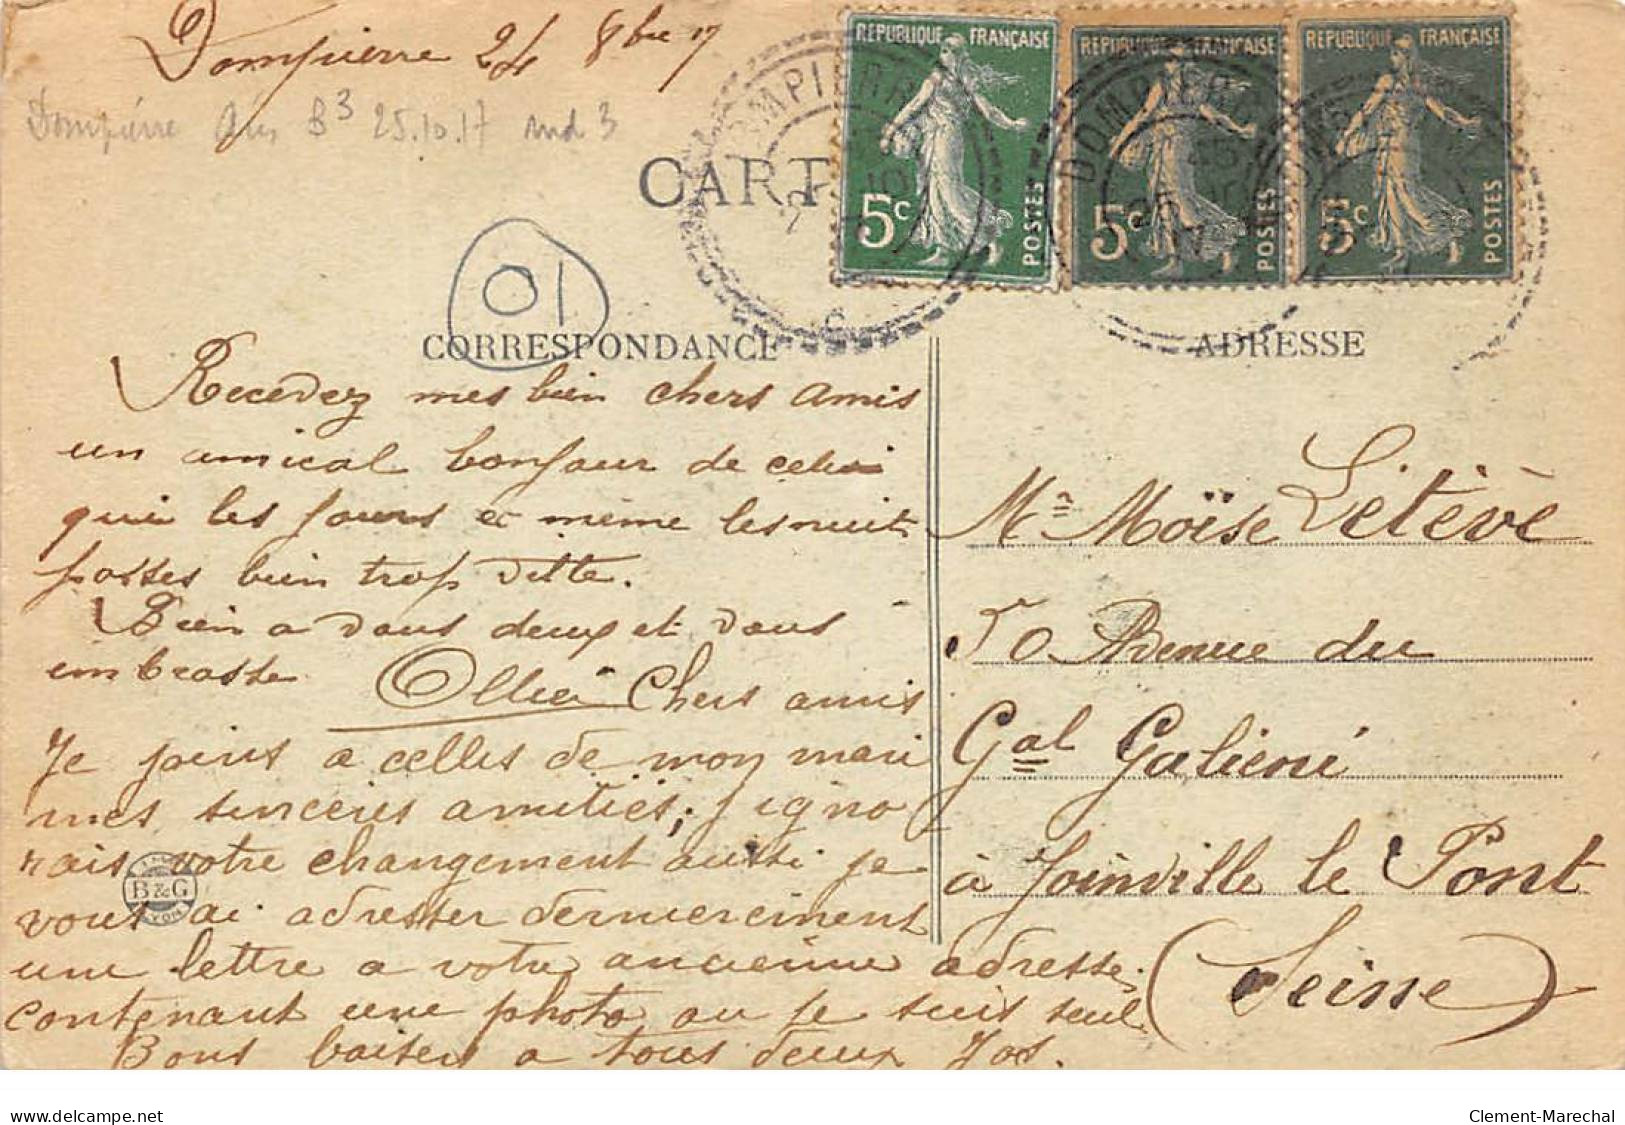 Dompierre 24 8bre 17
Dompierre Ain B3 25.10.17 ind 3
REPUBLIQUE FRANÇAISE
5c POSTES
REPUBLIQUE FRANÇAISE
5c POSTES
REPUBLIQUE FRANÇAISE
5c POSTES
DOMPIERRE
DOMPIERRE
CART
01
CORRESPONDANCE
ADRESSE
Recevez mes bien chers amis
un amical bonjour de celui
qui les jours et même les nuit
passes bien trop vitte.
Bien a vous deux et vous
embrasse Ollier Chers amis
Je joins a celles de mon mari
mes sinceres amitiés, j igno
rais votre changement aussi je
vous ai adresser dernierement
une lettre a votre ancienne adresse.
contenant une photo ou je suis seul
Bons baisers a tous deux Jos.
B&G
LYON
Mr Moïse Létévè
50 Avenue du
Gal Galiéni
à Joinville le Pont
(Seine)
www.delcampe.net
Clement-Marechal